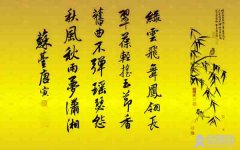 綠雲飛舞鳳翎長
翠葆輕搖玉節香
舊曲不彈瑤瑟怨
秋風秋雨夢瀟湘
蘇臺唐寅